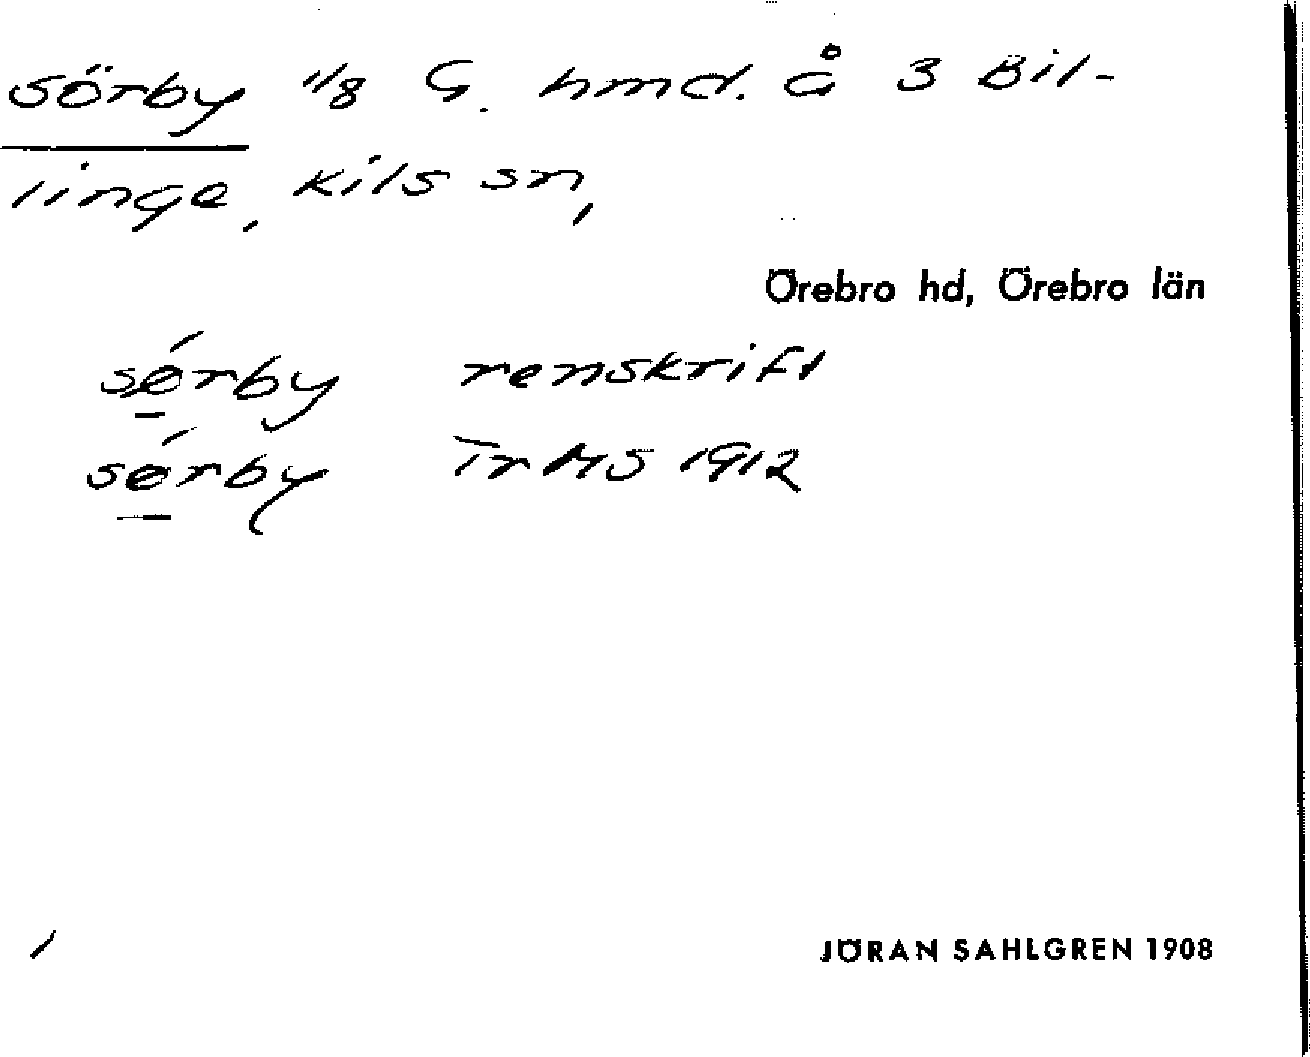 Sörby 1/8 G. hmd. å 3 Bil-
linge, Kils sn,
Örebro hd, Örebro län
sǿrby renskrift
sǿrby Tr MS 1912
/
JÖRAN SAHLGREN 1908